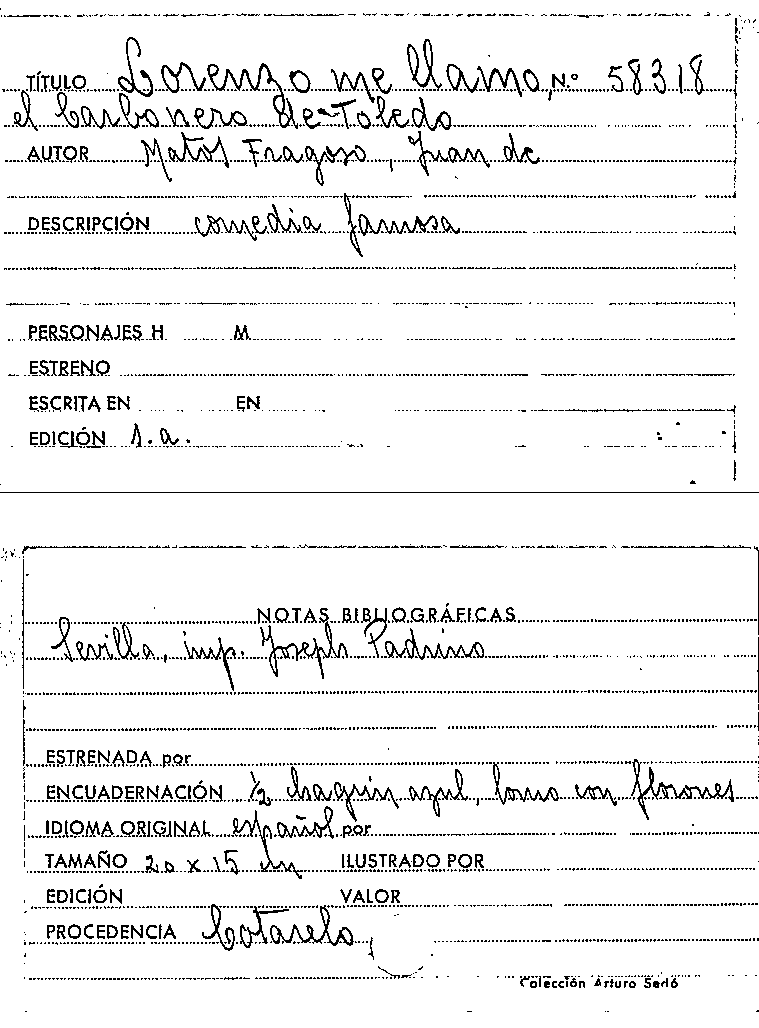 TÍTULO Lorenzo me llamo, N.º 58318
el Carbonero de Toledo
AUTOR Matos Fragoso, Juan de
DESCRIPCIÓN comedia famosa
PERSONAJES H M
ESTRENO
ESCRITA EN EN
EDICIÓN s.a.
NOTAS BIBLIOGRÁFICAS
Sevilla, imp. Joseph Padrino
ESTRENADA por
ENCUADERNACIÓN ½ chagrin azul, lomo con florones
IDIOMA ORIGINAL español por
TAMAÑO 20 x 15 cm ILUSTRADO POR
EDICIÓN VALOR
PROCEDENCIA Cotarelo
Colección Arturo Sedó